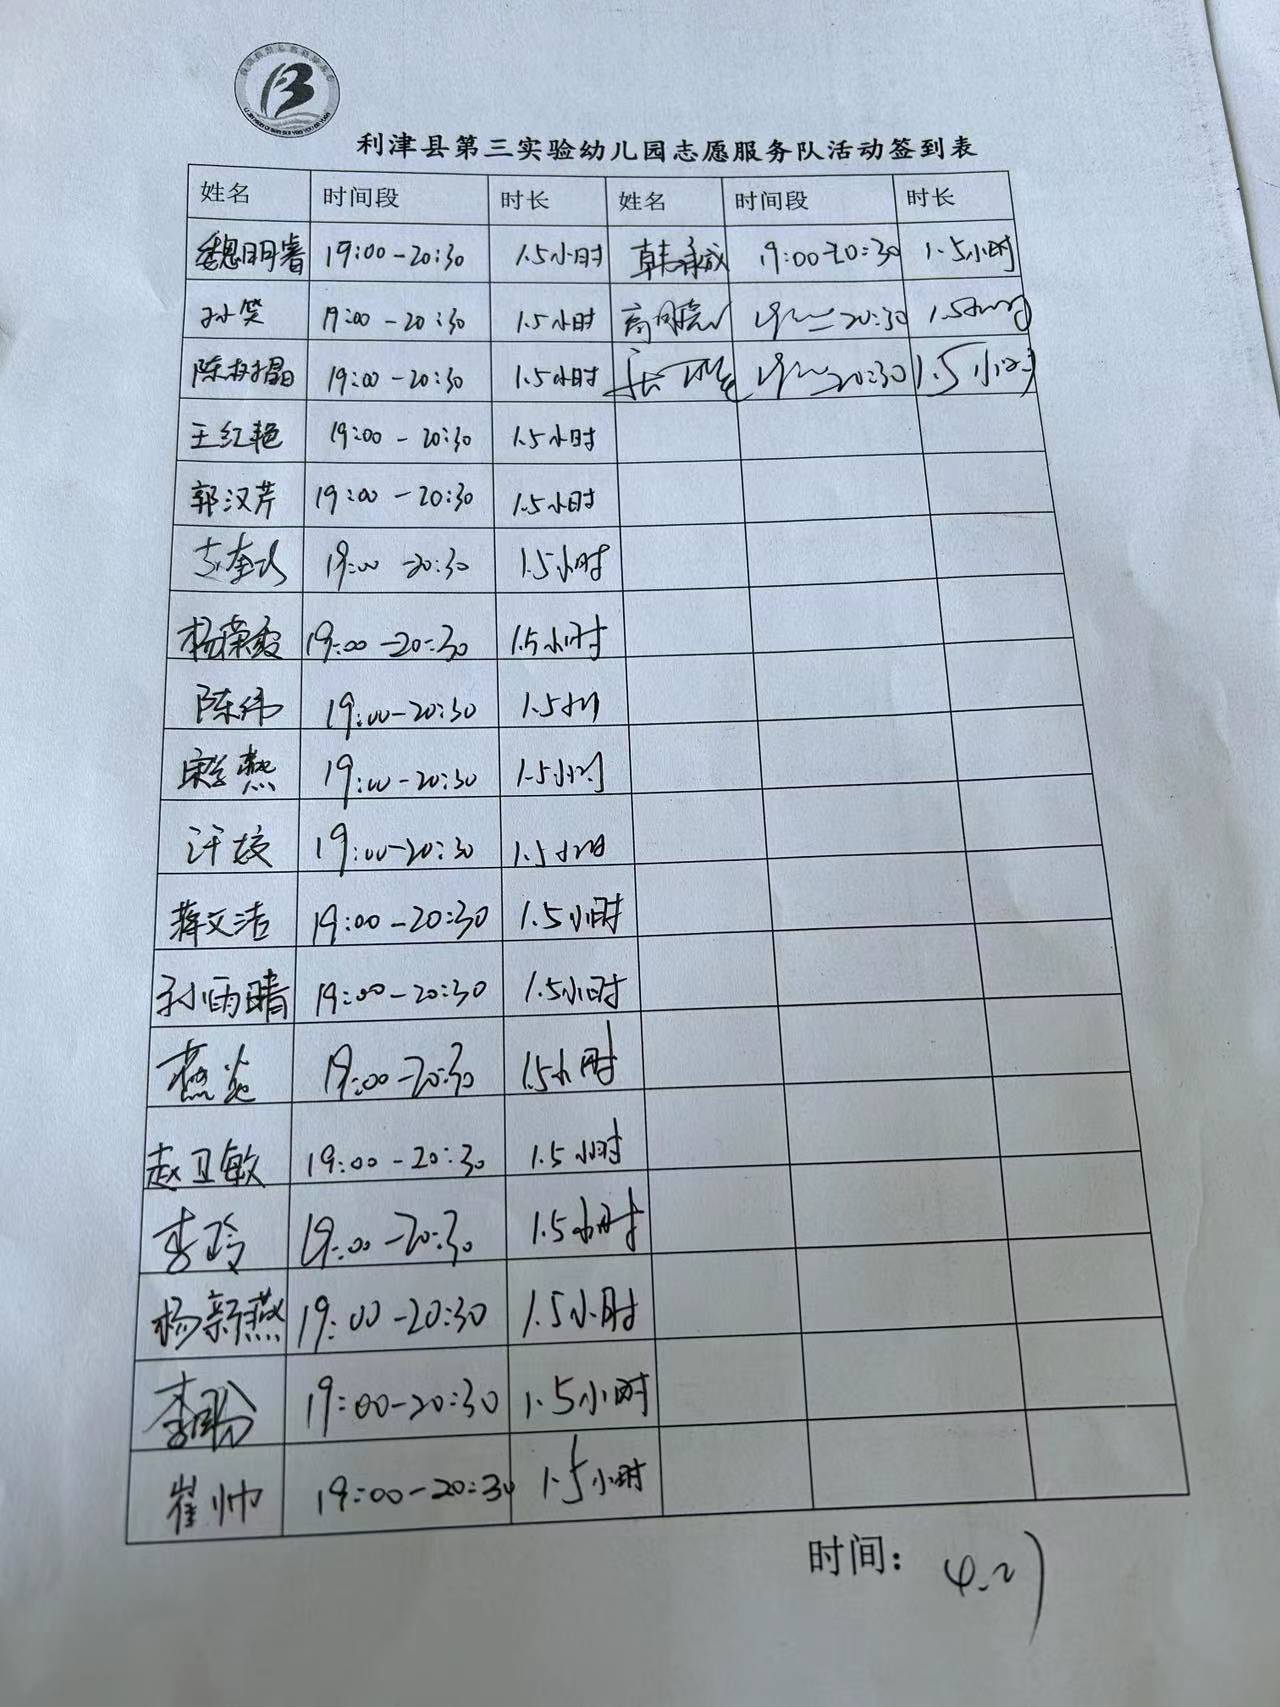 利津县第三实验幼儿园志愿服务队活动签到表
姓名 时间段 时长 姓名 时间段 时长
魏明睿 19:00-20:30 1.5小时 韩承成 19:00-20:30 1.5小时
孙笑 19:00-20:30 1.5小时 20:30 1.5小时
陈树晶 19:00-20:30 1.5小时 20:30 1.5小时
王红艳 19:00-20:30 1.5小时
郭汉芹 19:00-20:30 1.5小时
19:00-20:30 1.5小时
杨荣霞 19:00-20:30 1.5小时
陈纬 19:00-20:30 1.5小时
宋学燕 19:00-20:30 1.5小时
许姣 19:00-20:30 1.5小时
蒋文洁 19:00-20:30 1.5小时
孙雨晴 19:00-20:30 1.5小时
燕炎 19:00-20:30 1.5小时
赵卫敏 19:00-20:30 1.5小时
李玲 19:00-20:30 1.5小时
杨新燕 19:00-20:30 1.5小时
19:00-20:30 1.5小时
崔帅 19:00-20:30 1.5小时
时间: 4.27